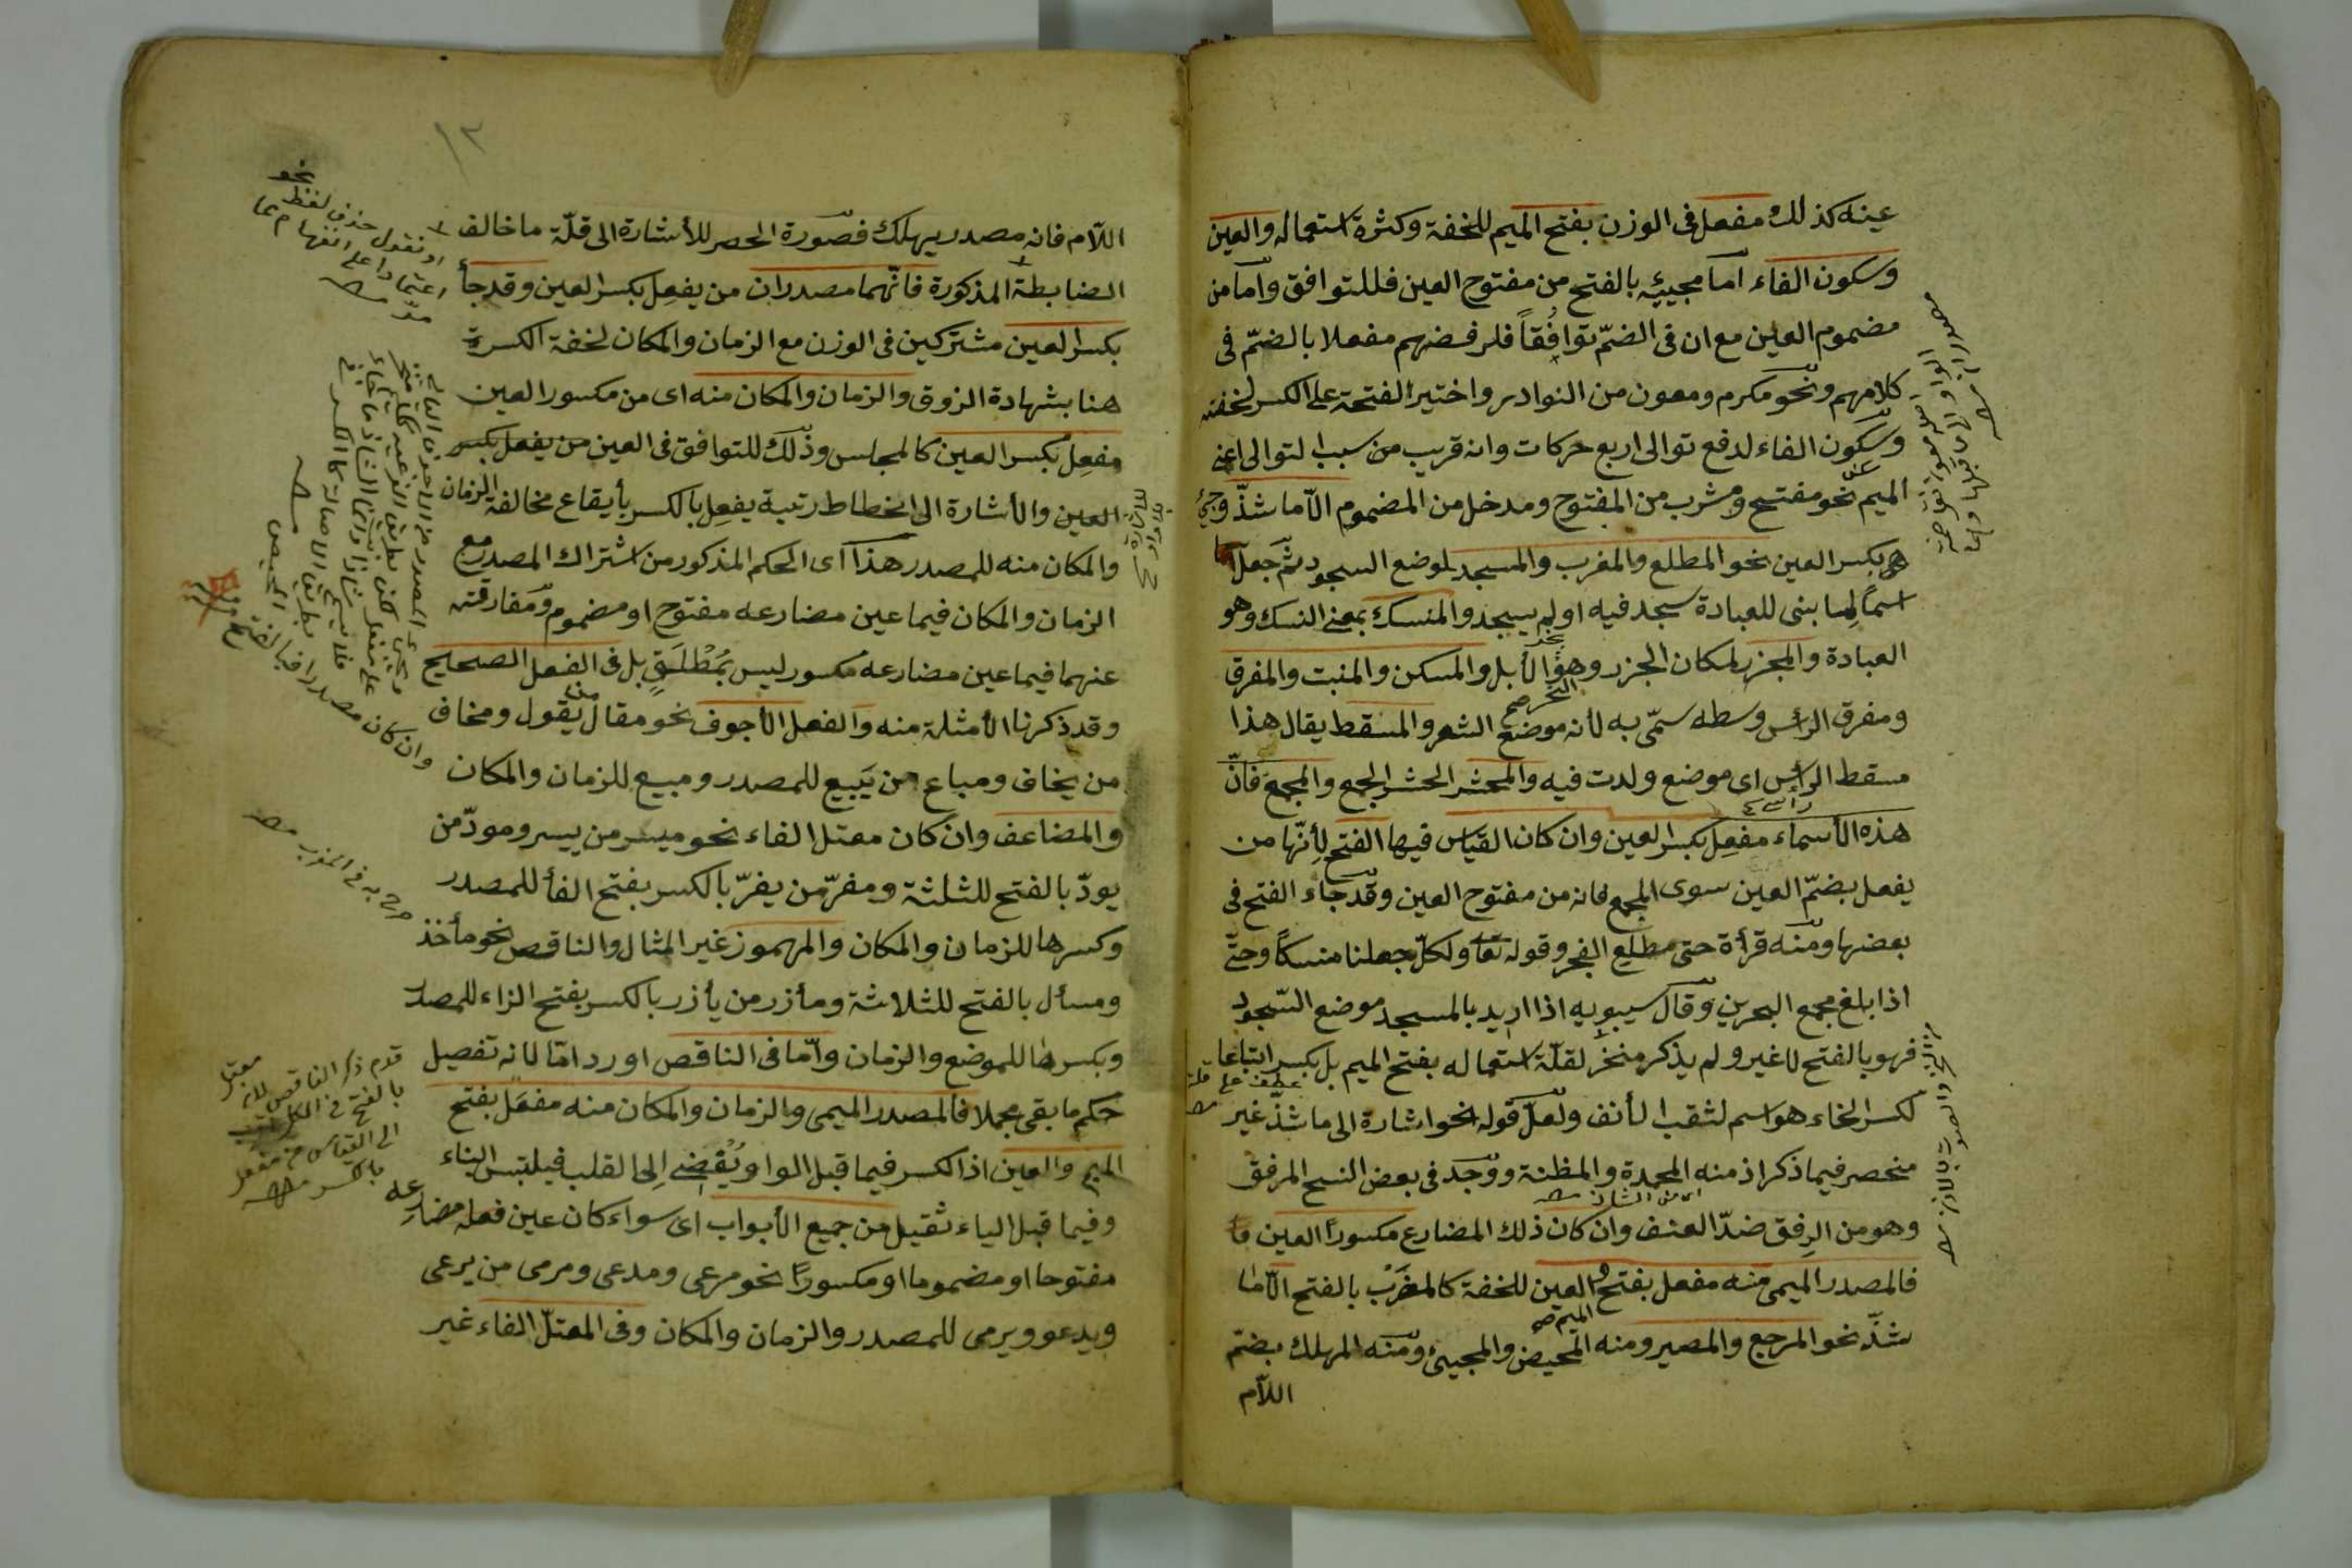 عينه كذلك مفعل فى الوزن بفتح الميم للخفة وكثرة استعماله والعين
وسكون الفاء اما مجيئه بالفتح من مفتوح العين فللتوافق واما من
مضموم العين مع ان فى الضمّ توافُقاً فلرفضهم مفعلا بالضمّ فى
كلامهم ونحو مكرم ومعون من النوادر واختير الفتحة على الكسر لخفته
وسكون الفاء لدفع توالى اربع حركات وانه قريب من سبب التوالى اعنى
الميم نحو مفتح ومشرب من المفتوح ومدخل من المضموم الّا ما شذّ وجئ
بكسر العين نحو المطلع والمغرب والمسجد لموضع السجود ثمّ جعل
اسماً لِما بنى للعبادة سجد فيه او لم يسجد والمنسك بمعنى النسك وهو
العبادة والمجزر لمكان الجزر وهو الأبل والمسكن والمنبت والمفرق
ومفرق الرأس وسطه سمّى به لأنه موضع الشعر والمسقط يقال هذا
مسقط الرأس اى موضع ولدت فيه والمحشر الحشر الجمع والمجمع فانّ
هذه الأسماء مفعِل بكسر العين وان كان القياس فيها الفتح لِأنّها من
يفعل بضمّ العين سوى المجمع فانه من مفتوح العين وقد جاء الفتح فى
بعضها ومنه قرأة حتى مطلَع الفجر وقوله تعا ولكلّ جعلنا منسكاً وحتّى
اذا بلغ مجمع البحرين وقال سيبويه اذا اريد بالمسجد موضع السّجود
فهو بالفتح لا غير ولم يذكر منخر لقلّة استعماله بفتح الميم بل بكسر اتباعا
لكسر الخاء هو اسم لثقب الأنف ولعلّ قوله نحو اشارة الى ما شذّ غير
منحصر فيما ذكر اذ منه المحمدة والمظنة ووجد فى بعض النسخ المرفق
وهو من الرِفق ضدّ العنف وان كان ذلك المضارع مكسوراً العين
فالمصدر الميمى منه مفعل بفتح العين للخفة كالمغرَب بالفتح الّا ما
شذّ نحو المرجع والمصير ومنه المحيض والمجيئ ومنه المهلك بضمّ
اللام
١٣
اللّام فانه مصدر يهلك فصورة الحصر للأشارة الى قلّة ما خالف
الضابطة المذكورة فانّهما مصدران من يفعِل بكسر العين وقد جأ
بكسر العين مشتركين فى الوزن مع الزمان والمكان لخفة الكسرة
هنا بشهادة الزوق والزمان والمكان منه اى من مكسور العين
مفعِل بكسر العين كالمجلس وذلك للتوافق فى العين من يفعل بكسر
العين والأشارة الى انحطاط رتبة يفعِل بالكسر بأيقاع مخالفة الزمان
والمكان منه للمصدر هذا اى الحكم المذكور من اشتراك المصدر مع
الزمان والمكان فيما عين مضارعه مفتوح او مضموم ومفارقته
عنهما فيما عين مضارعه مكسور ليس بمُطْلَقٍ بل فى الفعل الصحيح
وقد ذكرنا الأمثلة منه والفعل الأجوف نحو مقال من يقول ومخاف
من يخاف ومباع من يَبيع للمصدر ومبيع للزمان والمكان
والمضاعف وان كان معتل الفاء نحو ميسر من ييسر ومودّ من
يودّ بالفتح للثلثة ومفرّ من يفرّ بالكسر بفتح الفأ للمصدر
وكسرها للزمان والمكان والمهموز غير المثال والناقص نحو مأخذ
ومسأل بالفتح للثلاثة ومأزر من يأزر بالكسر بفتح الزاء للمصدر
وبكسرها للموضع والزمان وامّا فى الناقص اورد امّا لانه تفصيل
حكم ما بقى مجملا فالمصدر الميمى والزمان والمكان منه مفعَل بفتح
الميم والعين اذ الكسر فيما قبل الواو يُفضى الى القلب فيلتبس البناء
وفيما قبل الياء ثقيل من جميع الأبواب اى سواء كان عين فعله مضارعه
مفتوحا او مضموما او مكسوراً نحو مرعى ومدعى ومرمى من يرعى
ويدعو ويرمى للمصدر والزمان والمكان وفى المعتلّ الفاء غير
او نقول حذف لفظ نحو
اعتمادا على انفهامه مما مرّ
وان كان مصدرا فبالفتح
صرح به فى المغرب
قدم ذكر الناقص لانه
بالفتح فى الكل
الى القياس من مفعل
بالكسر